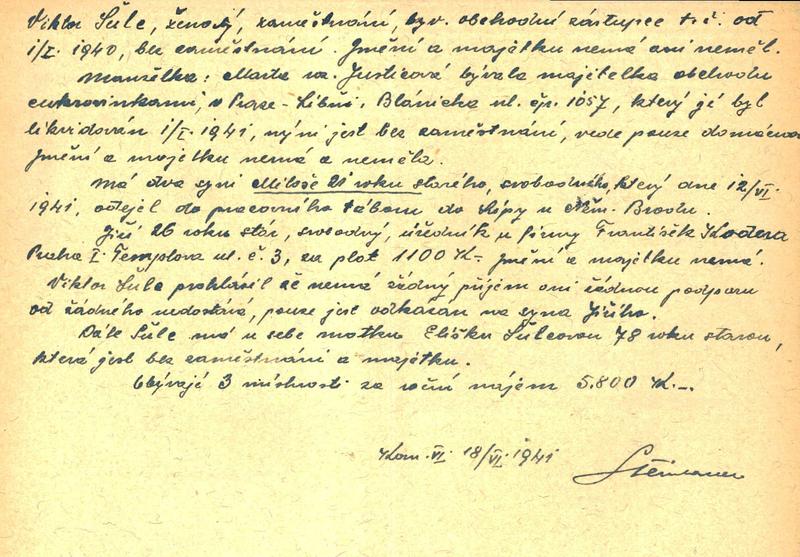 Viktor Šulc, ženatý, zaměstnání, býv. obchodní zástupce t.č. od
1/I. 1940, bez zaměstnání. Jmění a majetku nemá ani neměl.
Manželka: Marta roz. Justicová bývala majitelka obchodu
cukrovinkami, v Praze-Libni, Blánická ul. čp. 1057, který jé byl
likvidován 1/I. 1941, nyní jest bez zaměstnání, vede pouze domácnos
Jmění a majetku nemá a neměla.
Má dva syni Miloše 21 roků starého, svobodného, který dne 12/VI.
1941, odejel do pracovního tábora do Lípy u Něm. Brodu.
Jiří 26 roků stár, svobodný, úředník u firmy František Kodera
Praha I. Templova ul. č. 3, za plat 1100 K.- Jmění a majetku nemá.
Viktor Šulc prohlásil že nemá žádný příjem ani žádnou podporu
od žádného nedostává, pouze jest odkázán na syna Jiřího.
Dále Šulc má u sebe matku Elišku Šulcovou 78 roků starou,
která jest bez zaměstnání a majetku.
Obývají 3 místnosti za roční nájem 5.800 K.-.
Kom. VI. 18/VI. 1941